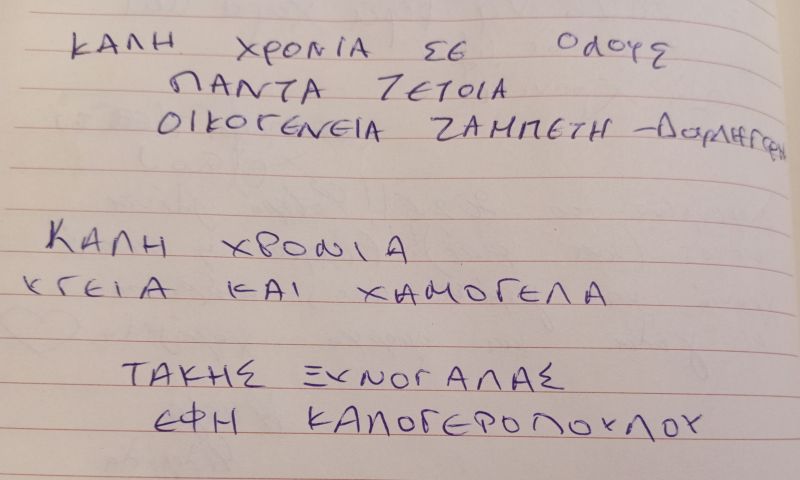 ΚΑΛΗ ΧΡΟΝΙΑ ΣΕ Ολους
ΠΑΝΤΑ ΤΕΤΟΙΑ
ΟΙΚΟΓΕΝΕΙΑ ΖΑΜΠΕΤΗ
ΚΑΛΗ ΧΡΟΝΙΑ
ΥΓΕΙΑ ΚΑΙ ΧΑΜΟΓΕΛΑ
ΤΑΚΗΣ ΞΥΝΟΓΑΛΑΣ
ΕΦΗ ΚΑΛΟΓΕΡΟΠΟΥΛΟΥ